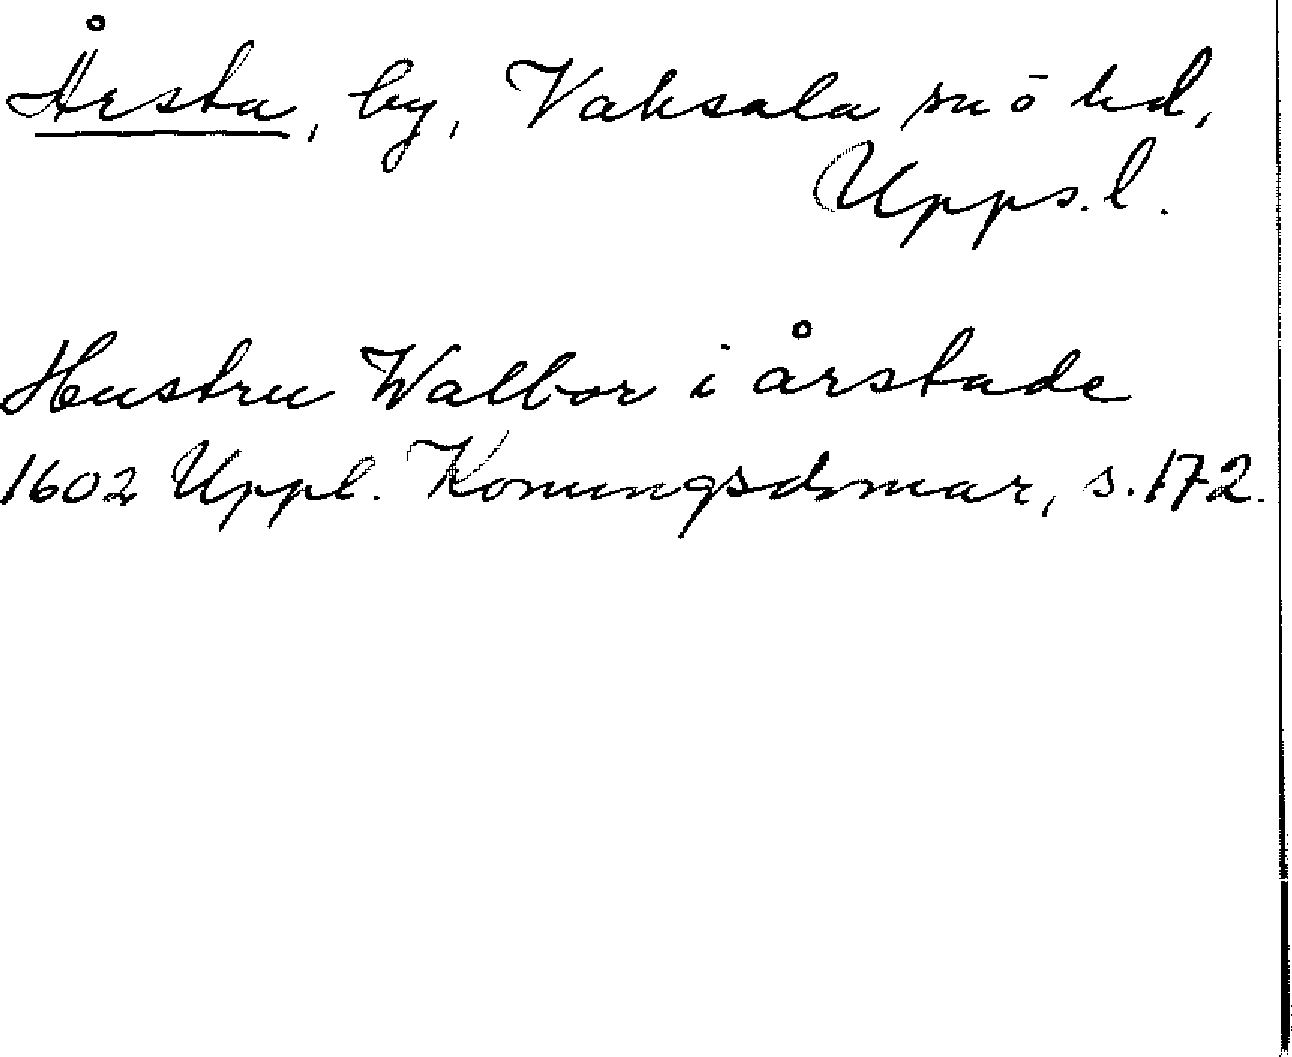 Årsta, by, Vaksala sn o hd,
Upps.l.
Hustru Walbor i årstade
1602 Uppl. Konungsdomar, s. 172.